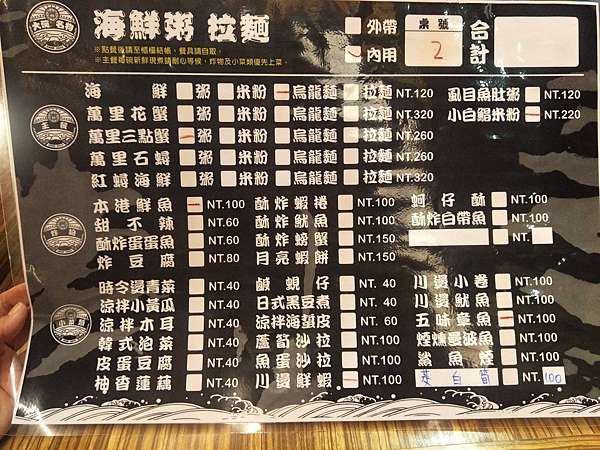 海鮮粥 拉麵
外帶
內用
桌號
2
合計
※點餐後請至櫃檯結帳,餐具請自取。
※主餐每碗新鮮現煮請耐心等候,炸物及小菜類優先上菜。
主食
海鮮 粥 米粉 烏龍麵 拉麵 NT.120
萬里花蟹 粥 米粉 烏龍麵 拉麵 NT.320
萬里三點蟹 粥 米粉 烏龍麵 拉麵 NT.260
萬里石蟳 粥 米粉 烏龍麵 拉麵 NT.260
紅蟳海鮮 粥 米粉 烏龍麵 拉麵 NT.320
虱目魚肚粥 NT.120
小白鯧米粉 NT.220
本港鮮魚 NT.100
甜不辣 NT.60
酥炸蛋蛋魚 NT.60
炸豆腐 NT.80
酥炸蝦捲 NT.100
酥炸魷魚 NT.100
酥炸螃蟹 NT.150
月亮蝦餅 NT.150
蚵仔酥 NT.100
酥炸白帶魚 NT.100
NT.
小菜類
時令燙青菜 NT.40
涼拌小黃瓜 NT.40
涼拌木耳 NT.40
韓式泡菜 NT.40
皮蛋豆腐 NT.40
柚香蓮藕 NT.40
鹹蜆仔 NT.40
日式黑豆煮 NT.40
涼拌海蜇皮 NT.60
蘆筍沙拉 NT.100
魚蛋沙拉 NT.100
川燙鮮蝦 NT.100
川燙小卷 NT.100
川燙魷魚 NT.100
五味章魚 NT.100
煙燻曼波魚 NT.100
鯊魚煙 NT.100
茭白筍 NT.100